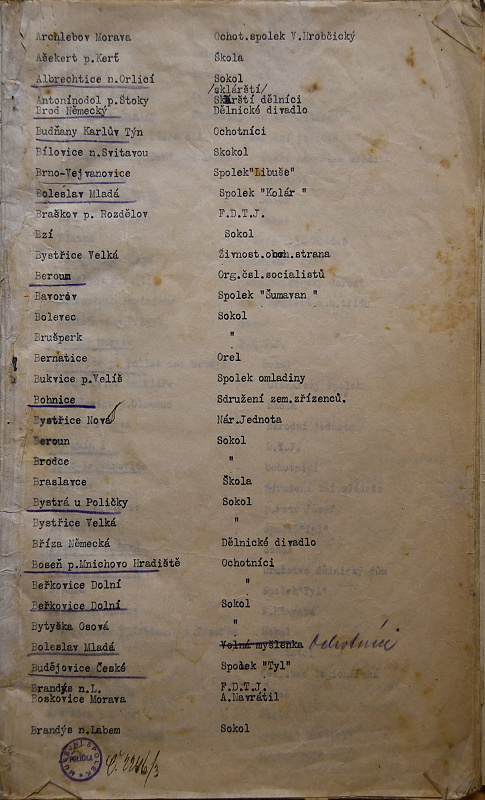 Archlebov Morava Ochot.spolek V.Hrobčický
Ašekert p.Kerť Škola
Albrechtice n.Orlicí Sokol
/sklářští/
Antonínodol p.Štoky Sklářští dělníci
Brod Německý Dělnické divadlo
Budňany Karlův Týn Ochotníci
Bílovice n.Svitavou Skokol
Brno-Vejvanovice Spolek"Libuše"
Boleslav Mladá Spolek "Kolár "
Braškov p. Rozdělov F.D.T.J.
Bzí Sokol
Bystřice Velká Živnost.obch.strana
Beroun Org.čsl.socialistů
Bavorov Spolek "Šumavan "
Bolevec Sokol
Brušperk "
Bernatice Orel
Bukvice p.Velíš Spolek omladiny
Bohnice Sdružení zem.zřízenců.
Bystřice Nová Nár.Jednota
Beroun Sokol
Brodce "
Braslavce Škola
Bystrá u Poličky Sokol
Bystřice Velká "
Bříza Německá Dělnické divadlo
Boseň p.Mnichovo Hradiště Ochotníci
Beřkovice Dolní "
Beřkovice Dolní Sokol
Bytyška Osová "
Boleslav Mladá Volná myšlenka Ochotníci
Budějovice České Spolek "Tyl"
Brandýs n.L. F.D.T.J.
Boskovice Morava A.Navrátil
Brandýs n.Labem Sokol
MUSEJNÍ SPOLEK
POLIČKA
Č. 2246/3